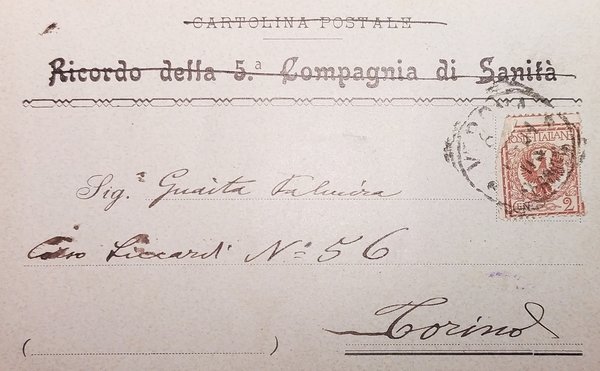 CARTOLINA POSTALE
Ricordo della 5.ª Compagnia di Sanità
POSTE ITALIANE
CEN. 2
Sig.ª Guaita Palmira
Corso Siccardi Nº 56
Torino
( )